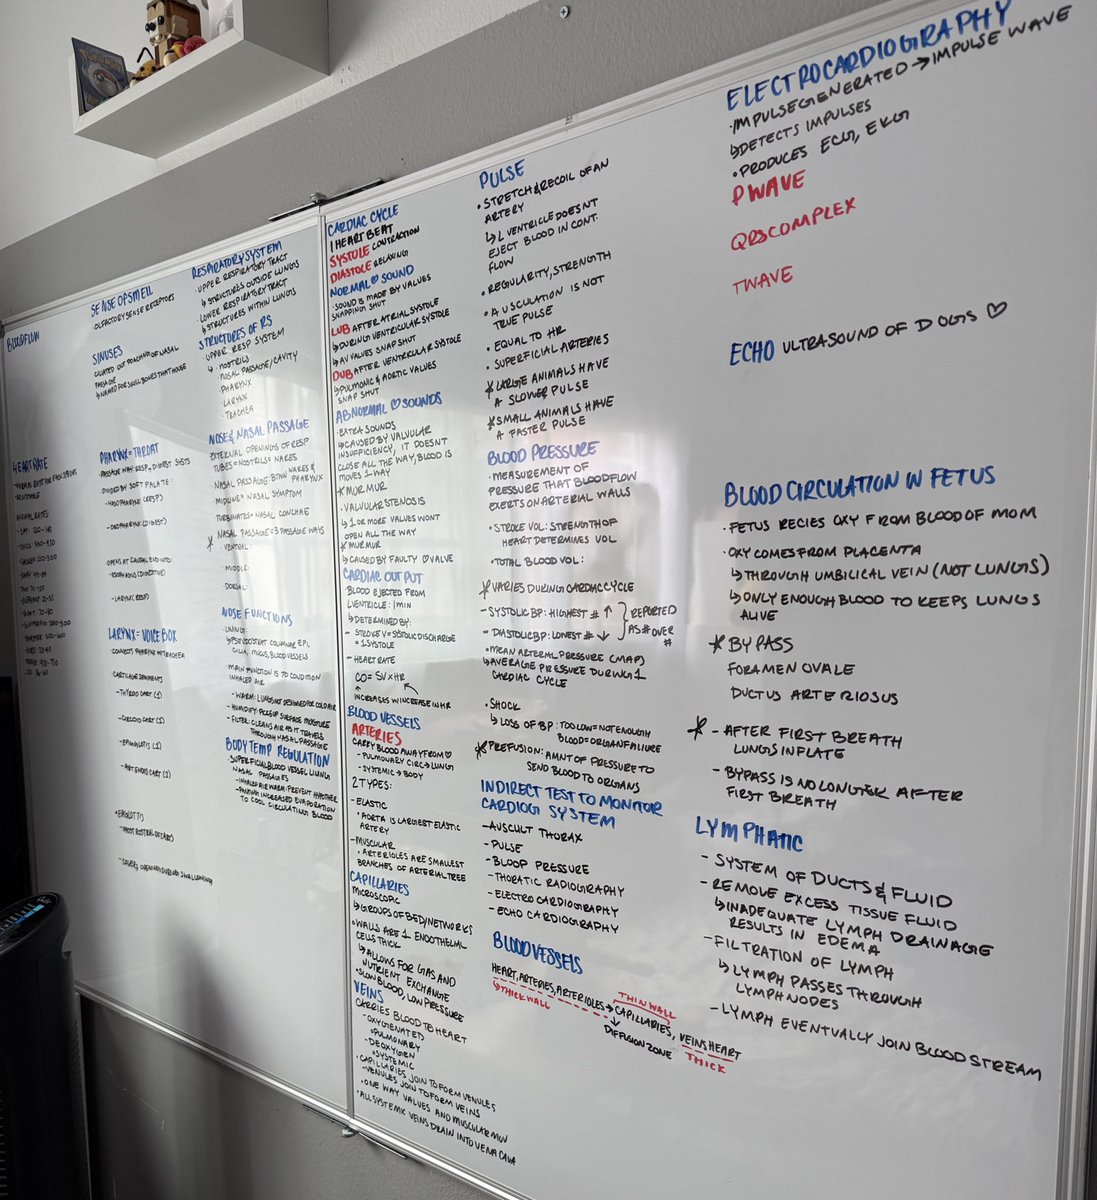 BLOODFLOW
HEART RATE
SENSE OF SMELL
OLFACTORY SENSE RECEPTORS
SINUSES
PASSAGE
↳NAMED FOR SKULL BONES THAT HOUSE
PHARYNX=THROAT
DIVIDED BY SOFT PALATE:
LARYNX= VOICE BOX
CONNECTS PHARYNX W/TRACHEA
RESPIRATORY SYSTEM
·UPPER RESPIRATORY TRACT
↳STRUCTURES OUTSIDE LUNGS
·LOWER RESPIRATORY TRACT
↳STRUCTURES WITHIN LUNGS
STRUCTURES OF RS
·UPPER RESP SYSTEM
↳·NOSTRILS
·NASAL PASSAGE/CAVITY
·PHARYNX
·LARYNX
·TRACHEA
NOSE & NASAL PASSAGE
EXTERNAL OPENINGS OF RESP
TUBES=NOSTRILS=NARES
NASAL PASSAGE: BTWN NARES & PHARYNX
TURBINATES= NASAL CONCHAE
* NASAL PASSAGE=3 PASSAGE WAYS
VENTRAL:
MIDDLE:
DORSAL:
NOSE FUNCTIONS
CILIA, MUCUS, BLOOD VESSELS
MAIN FUNCTION IS TO CONDITION
INHALED AIR
-FILTER: CLEANS AIR AS IT TRAVELS
THROUGH NASAL PASSAGE
BODY TEMP REGULATION
·SUPERFICIAL BLOOD VESSEL LINING
NASAL PASSAGES
TO COOL CIRCULATING BLOOD
CARDIAC CYCLE
1 HEART BEAT
SYSTOLE CONTRACTION
DIASTOLE RELAXING
NORMAL ♡ SOUND
·SOUND IS MADE BY VALVES
SNAPPING SHUT
LUB AFTER ATRIAL SYSTOLE
↳DURING VENTRICULAR SYSTOLE
↳AV VALVES SNAP SHUT
DUB AFTER VENTRICULAR SYSTOLE
↳PULMONIC & AORTIC VALVES
SNAP SHUT
ABNORMAL ♡ SOUNDS
·EXTRA SOUNDS
↳CAUSED BY VALVULAR
INSUFFICIENCY, IT DOESNT
CLOSE ALL THE WAY, BLOOD IS
MOVES 1-WAY
*MURMUR
·VALVULAR STENOSIS
↳1 OR MORE VALVES WONT
OPEN ALL THE WAY
*MURMUR
↳CAUSED BY FAULTY ♡ VALVE
CARDIAC OUTPUT
BLOOD EJECTED FROM
L VENTRICLE: /MIN
↳DETERMINED BY:
- STROKE V=SYSTOLIC DISCHARGE
=1 SYSTOLE
-HEART RATE
CO=SV×HR
INCREASES W INCREASE IN HR
BLOOD VESSELS
ARTERIES
CARRY BLOOD AWAY FROM ♡
-PULMONARY CIRC→LUNGS
-SYSTEMIC→BODY
2 TYPES:
-ELASTIC
·AORTA IS LARGEST ELASTIC
ARTERY
-MUSCULAR
·ARTERIOLES ARE SMALLEST
BRANCHES OF ARTERIAL TREE
CAPILLARIES
MICROSCOPIC
↳GROUPS OF BED/NETWORKS
·WALLS ARE 1 ENDOTHELIAL
CELLS THICK
↳ALLOWS FOR GAS AND
NUTRIENT EXCHANGE
·SLOW BLOOD, LOW PRESSURE
VEINS
CARRIES BLOOD TO HEART
-OXYGENATED
·PULMONARY
-DEOXYGEN
·SYSTEMIC
·CAPILLARIES JOIN TO FORM VENULES
-VENULES JOIN TO FORM VEINS
·ONE WAY VALVES AND MUSCULAR MON
·ALL SYSTEMIC VEINS DRAIN INTO VENA CAVA
PULSE
·STRETCH & RECOIL OF AN
ARTERY
↳L VENTRICLE DOESNT
EJECT BLOOD IN CONT.
FLOW
·REGULARITY, STRENGTH
·AUSCULATION IS NOT
TRUE PULSE
·EQUAL TO HR
·SUPERFICIAL ARTERIES
*LARGE ANIMALS HAVE
A SLOWER PULSE
*SMALL ANIMALS HAVE
A FASTER PULSE
BLOOD PRESSURE
·MEASUREMENT OF
PRESSURE THAT BLOODFLOW
EXERTS ON ARTERIAL WALLS
·STROKE VOL: STRENGTH OF
HEART DETERMINES VOL
·TOTAL BLOOD VOL:
*VARIES DURING CARDIAC CYCLE
-SYSTOLIC BP: HIGHEST # ↑
-DIASTOLIC BP: LOWEST # ↓
REPORTED
AS # OVER
#
·MEAN ARTERIAL PRESSURE (MAP)
↳AVERAGE PRESSURE DURING 1
CARDIAC CYCLE
·SHOCK
↳LOSS OF BP: TOO LOW=NOT ENOUGH
BLOOD=ORGAN FAILURE
*PREFUSION: AMNT OF PRESSURE TO
SEND BLOOD TO ORGANS
INDIRECT TEST TO MONITOR
CARDIO SYSTEM
-AUSCULT THORAX
-PULSE
-BLOOD PRESSURE
-THORATIC RADIOGRAPHY
-ELECTRO CARDIOGRAPHY
-ECHO CARDIOGRAPHY
BLOOD VESSELS
HEART, ARTERIES, ARTERIOLES→CAPILLARIES, VEINS HEART
↳THICK WALL
THIN WALL
DIFFUSION ZONE
THICK
ELECTROCARDIOGRAPHY
·IMPULSE GENERATED→IMPULSE WAVE
↳DETECTS IMPULSES
·PRODUCES ECG, EKG
P WAVE
QRS COMPLEX
T WAVE
ECHO ULTRASOUND OF DOGS ♡
BLOOD CIRCULATION IN FETUS
·FETUS RECIES OXY FROM BLOOD OF MOM
·OXY COMES FROM PLACENTA
↳THROUGH UMBILICAL VEIN (NOT LUNGS)
↳ONLY ENOUGH BLOOD TO KEEPS LUNGS
ALIVE
*BYPASS
FORAMEN OVALE
DUCTUS ARTERIOSUS
*-AFTER FIRST BREATH
LUNGS INFLATE
-BYPASS IS NO LONGER AFTER
FIRST BREATH
LYMPHATIC
-SYSTEM OF DUCTS & FLUID
-REMOVE EXCESS TISSUE FLUID
↳INADEQUATE LYMPH DRAINAGE
RESULTS IN EDEMA
-FILTRATION OF LYMPH
↳LYMPH PASSES THROUGH
LYMPH NODES
-LYMPH EVENTUALLY JOIN BLOODSTREAM